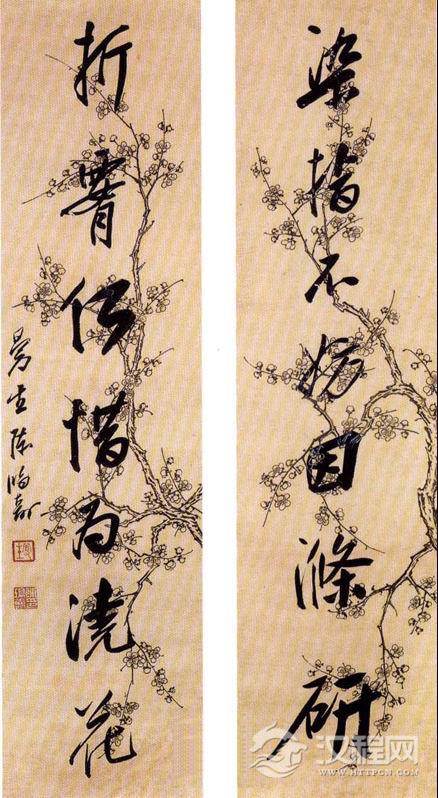 染指不妨因滌研
折腰何惜為澆花
曼生陳鴻壽
汉程网
WWW.HTTPCN.COM